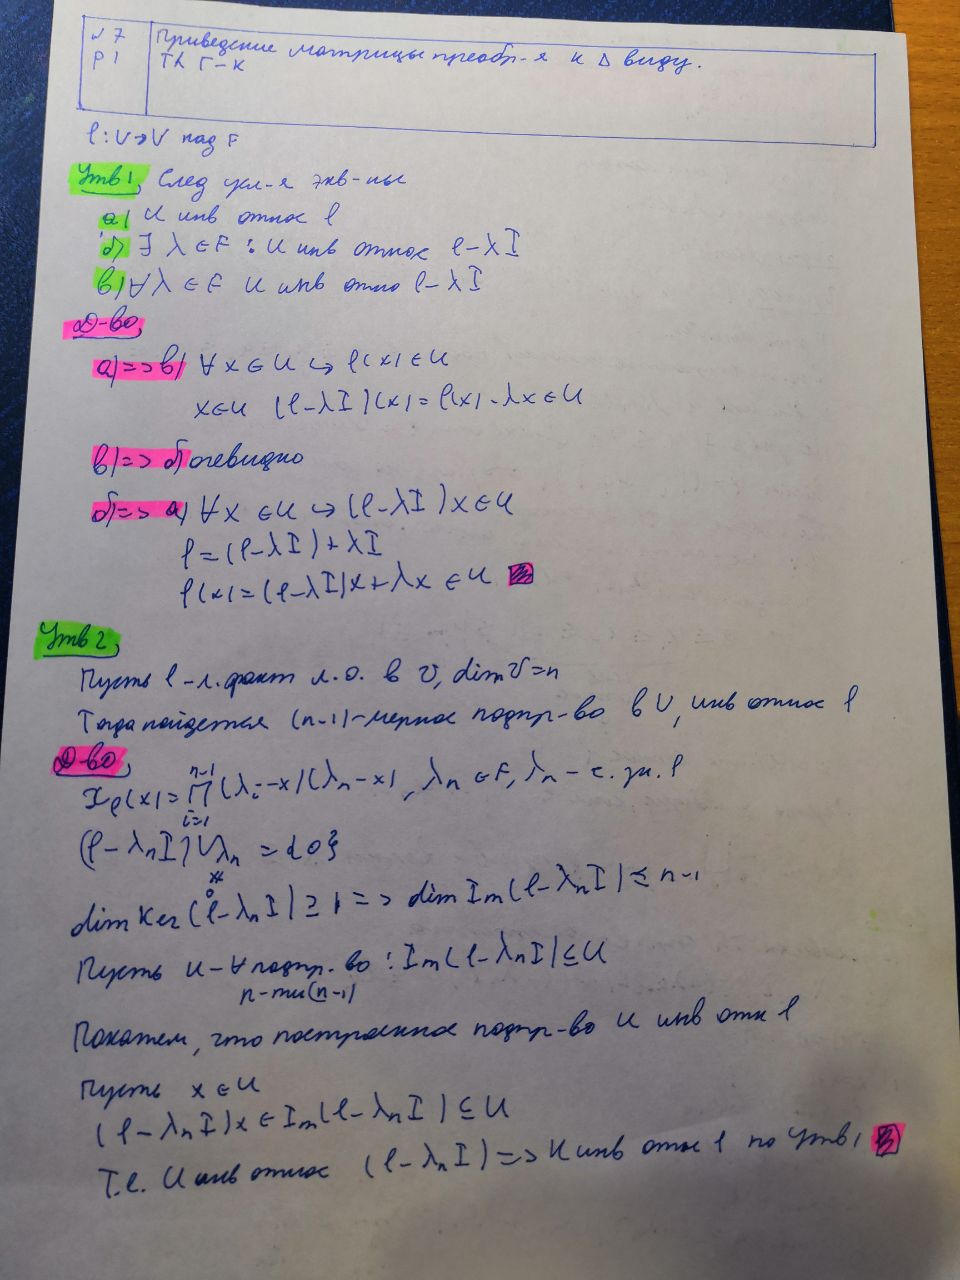 №7 Приведение матрицы преобр-я к Δ виду.
р1 Th Г-К
φ: V→V над F
Утв1, След усл-я экв-ны
а) U инв относ φ
б) ∃ λ ∈ F : U инв относ φ-λI
в) ∀λ ∈ F U инв отно φ-λI
Д-во,
а)=>в) ∀x ∈ U ↪ φ(x) ∈ U
x∈U (φ-λI)(x)=φ(x)-λx ∈ U
в)=> б) очевидно
б)=> а) ∀x ∈ U ↪ (φ-λI)x ∈ U
φ=(φ-λI)+λI
φ(x)=(φ-λI)x+λx ∈ U
Утв 2,
Пусть φ-л. факт л.о. в V, dim V=n
Тогда найдется (n-1)-мерное подпр-во в V, инв относ φ
Д-во,
χφ(x)=∏ⁿ⁻¹ᵢ₌₁(λᵢ-x)(λₙ-x), λₙ ∈ F, λₙ - с. зн. φ
(φ-λₙI)Vλₙ = {0}
≠
0
dim Ker(φ-λₙI)≥1 => dim Im(φ-λₙI)≤n-1
Пусть U-∀ подпр-во : Im(φ-λₙI)⊆U
n-ти(n-1)
Покажем, что построенное подпр-во U инв отн φ
Пусть x ∈ U
(φ-λₙI)x ∈ Im(φ-λₙI)⊆U
Т.е. U инв относ (φ-λₙI)=> U инв относ φ по Утв1